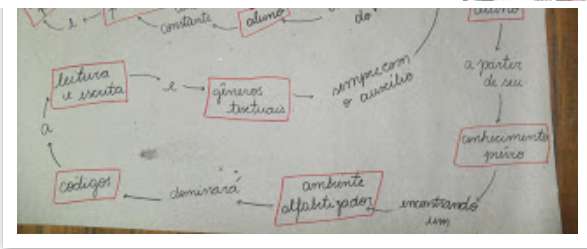 e
constante
aluno
do
aluno
leitura
e escrita
e
gêneros
textuais
sempre com
o auxílio
a partir
de seu
conhecimento
prévio
a
códigos
dominará
ambiente
alfabetizador
encontrando
um